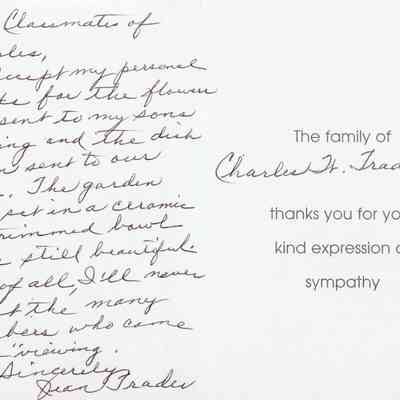 Classmates of
accept my personal
for the flowers
sent to my sons
and the dish
sent to our
The garden
set in a ceramic
trimmed bowl
still beautiful.
of all, I'll never
the many
who came
"viewing.
Sincerely
Jean Trader
The family of
Charles H. Trad
thanks you for yo
kind expression o
sympathy